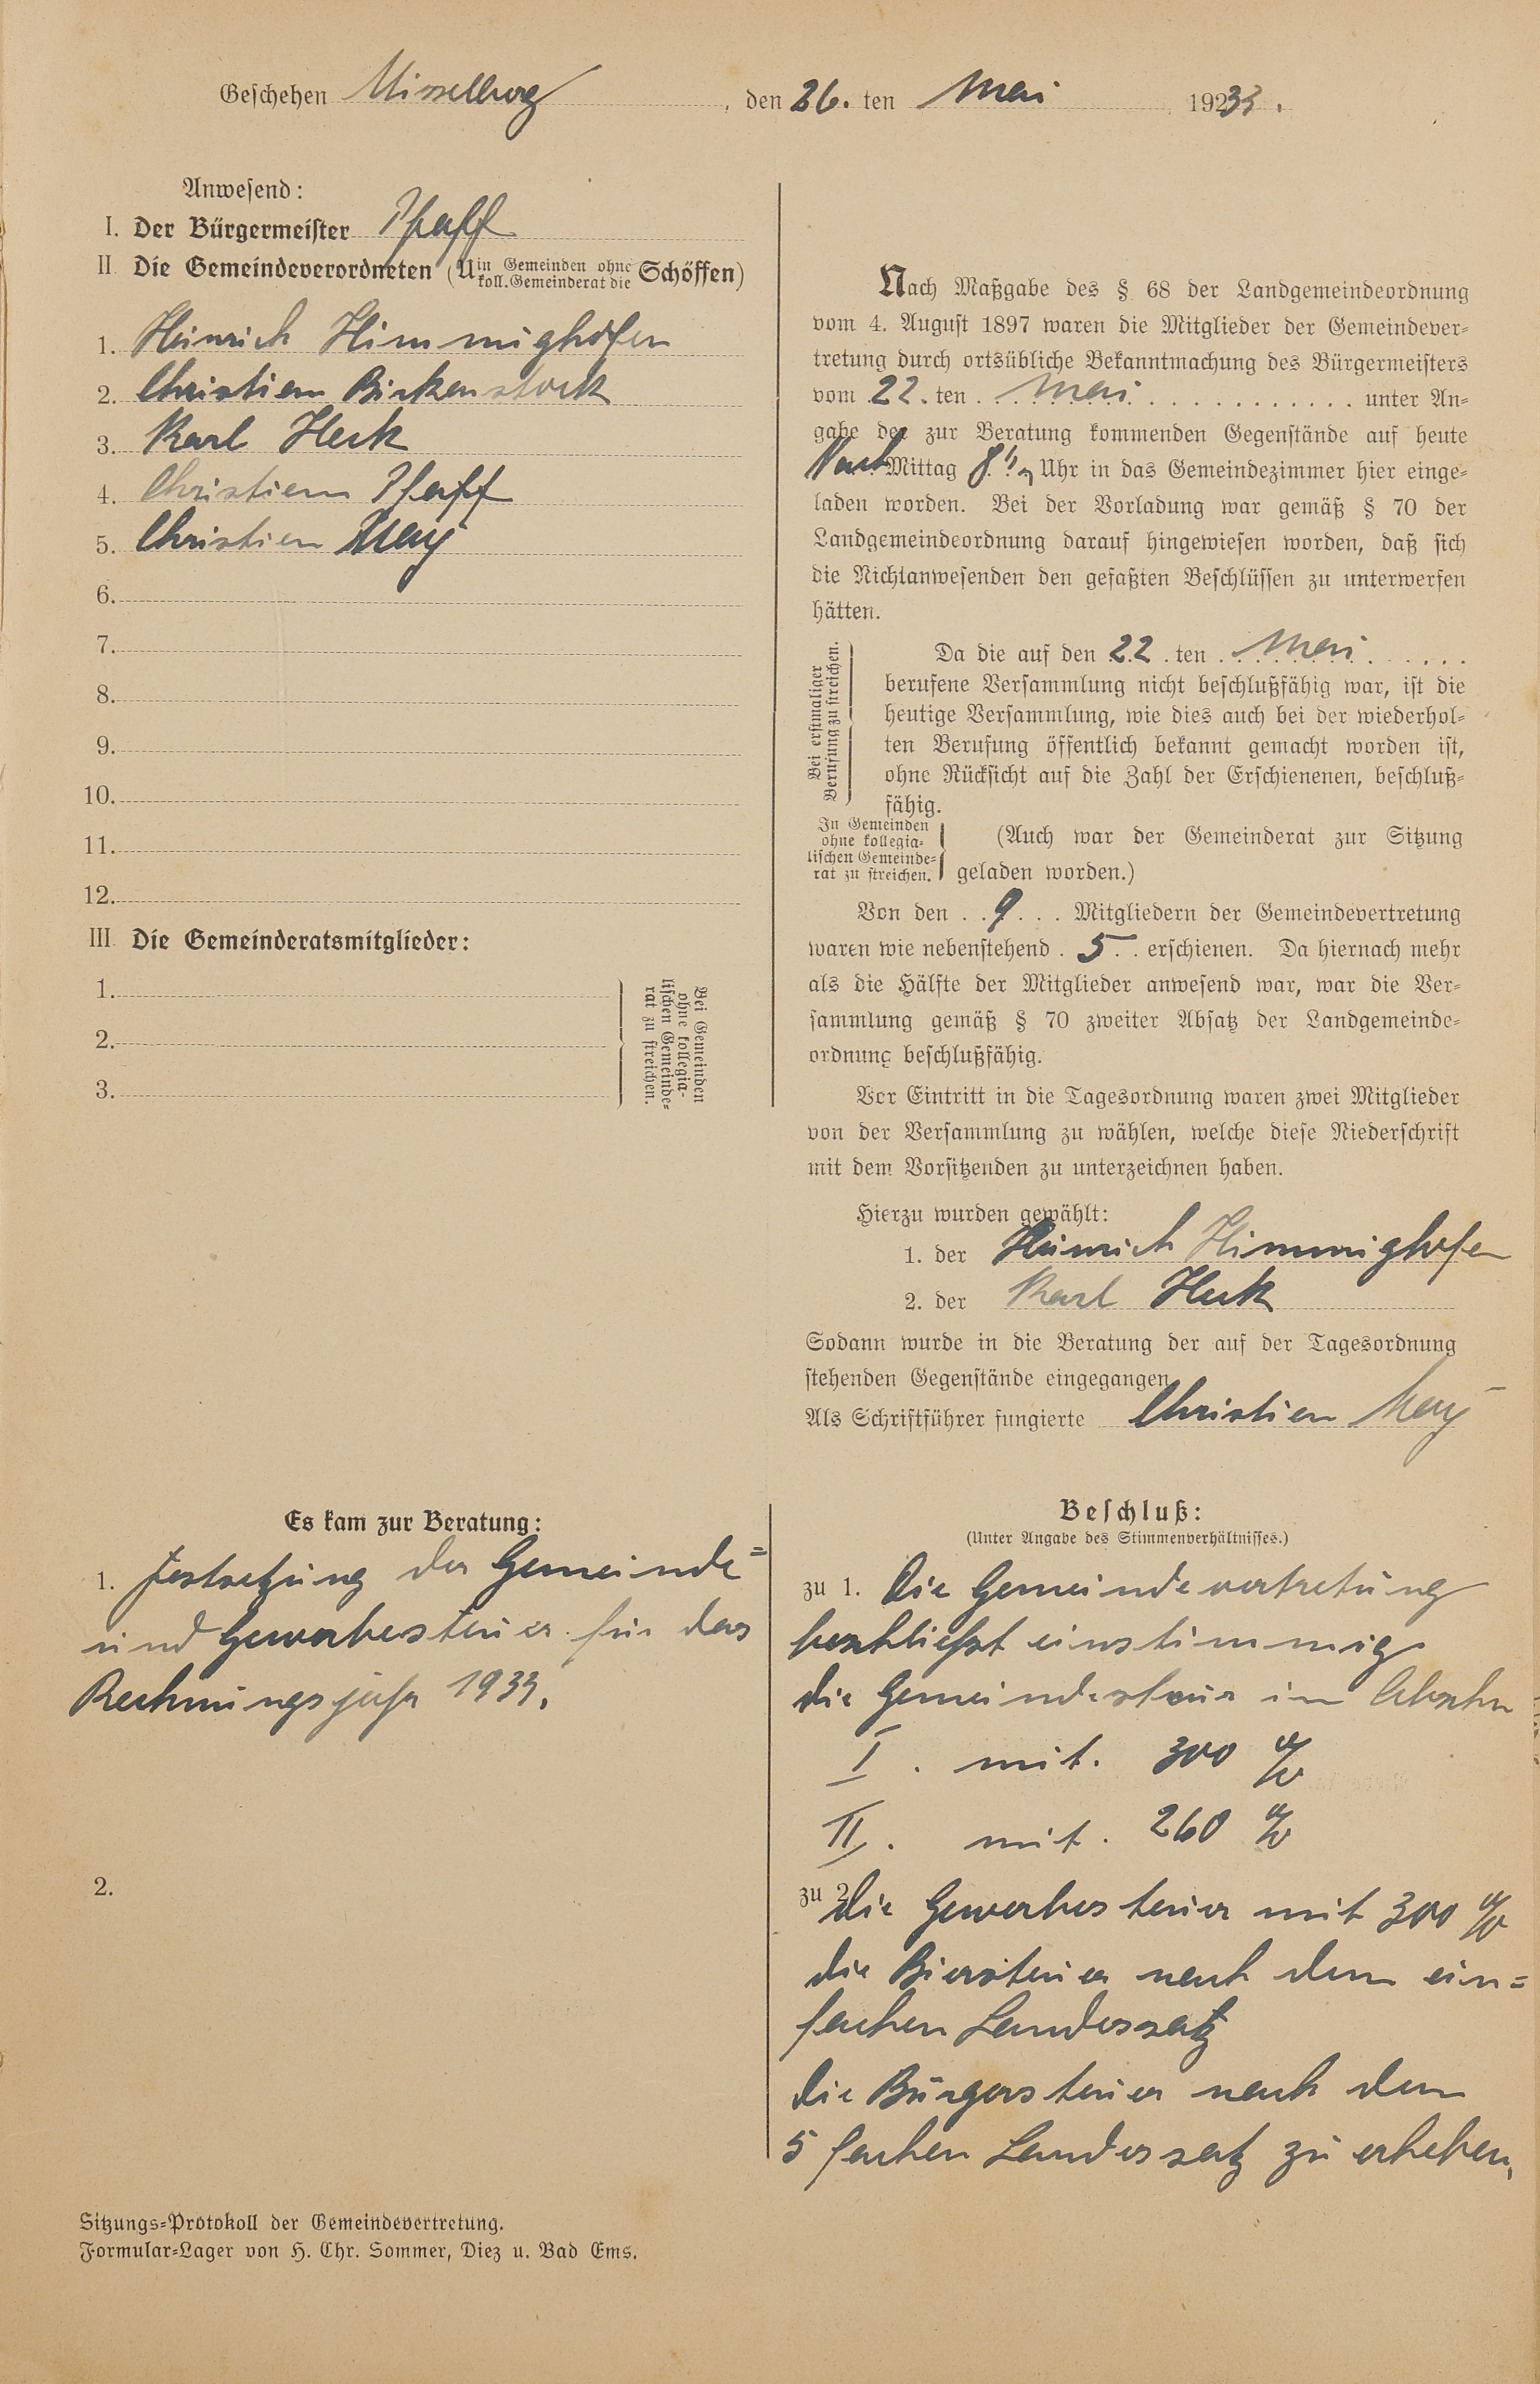 Geschehen Misselberg, den 26. ten Mai 19233.
Anwesend:
I. Der Bürgermeister Pfaff
II. Die Gemeindeverordneten (U in Gemeinden ohne koll. Gemeinderat die Schöffen)
1. Heinrich Himmighofen
2. Christian Birkenstock
3. Karl Heck
4. Christian Pfaff
5. Christian May
6.
7.
8.
9.
10.
11.
12.
III. Die Gemeinderatsmitglieder:
1.
2.
3.
Bei Gemeinden
ohne kollegia-
lischen Gemeinde-
rat zu streichen.
Nach Maßgabe des § 68 der Landgemeindeordnung
vom 4. August 1897 waren die Mitglieder der Gemeindever-
tretung durch ortsübliche Bekanntmachung des Bürgermeisters
vom 22. ten Mai unter An-
gabe der zur Beratung kommenden Gegenstände auf heute
Nach Mittag 8 Uhr in das Gemeindezimmer hier einge-
laden worden. Bei der Vorladung war gemäß § 70 der
Landgemeindeordnung darauf hingewiesen worden, daß sich
die Nichtanwesenden den gefaßten Beschlüssen zu unterwerfen
hätten.
Bei erstmaliger
Berufung zu streichen.
Da die auf den 22. ten Mai
berufene Versammlung nicht beschlußfähig war, ist die
heutige Versammlung, wie dies auch bei der wiederhol-
ten Berufung öffentlich bekannt gemacht worden ist,
ohne Rücksicht auf die Zahl der Erschienenen, beschluß-
fähig.
In Gemeinden
ohne kollegia-
lischen Gemeinde-
rat zu streichen.
(Auch war der Gemeinderat zur Sitzung
geladen worden.)
Von den 9 Mitgliedern der Gemeindevertretung
waren wie nebenstehend 5 erschienen. Da hiernach mehr
als die Hälfte der Mitglieder anwesend war, war die Ver-
sammlung gemäß § 70 zweiter Absatz der Landgemeinde-
ordnung beschlußfähig.
Vor Eintritt in die Tagesordnung waren zwei Mitglieder
von der Versammlung zu wählen, welche diese Niederschrift
mit dem Vorsitzenden zu unterzeichnen haben.
Hierzu wurden gewählt:
1. der Heinrich Himmighofen
2. der Karl Heck
Sodann wurde in die Beratung der auf der Tagesordnung
stehenden Gegenstände eingegangen
Als Schriftführer fungierte Christian May
Es kam zur Beratung:
1. Festsetzung der Gemeinde=
und Gewerbesteuer für das
Rechnungsjahr 1933.
2.
Beschluß:
(Unter Angabe des Stimmenverhältnisses.)
zu 1. Die Gemeindevertretung
beschließt einstimmig
die Gemeindesteuer im Abschn
I. mit. 300 %
II. mit. 260 %
zu 2. Die Gewerbesteuer mit 300 %
die Biersteuer nach dem ein=
fachen Landessatz
die Bürgersteuer nach dem
5 fachen Landessatz zu erheben.
Sitzungs-Protokoll der Gemeindevertretung.
Formular-Lager von H. Chr. Sommer, Diez u. Bad Ems.